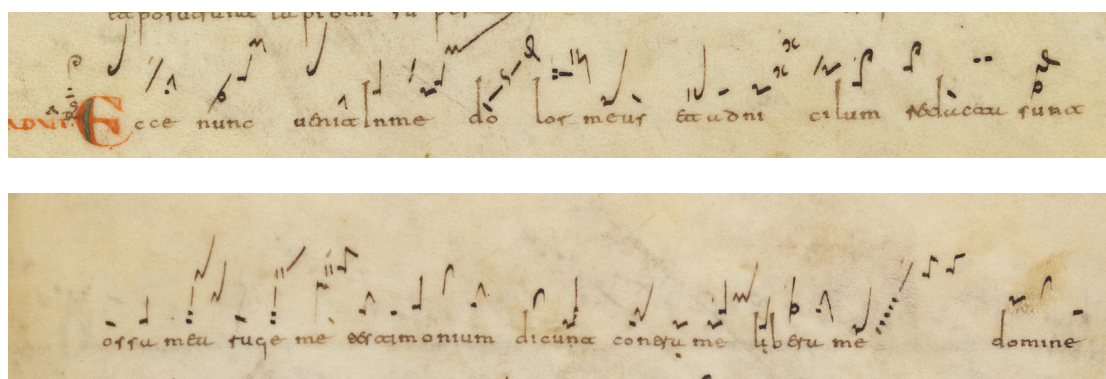 Ecce nunc uenit In me do lor meus et ad ni cilum redacta sunt
ossa mea me testimonium dicunt contra me libera me domine